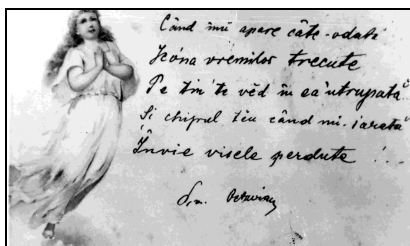 Când îmi apare câte-odată
Icóna vremilor trecute
Pe tin' te vĕd în ea'ntrupată
Și chipul tĕu când mi-i arată
Învie visele perdute !..
Octavian